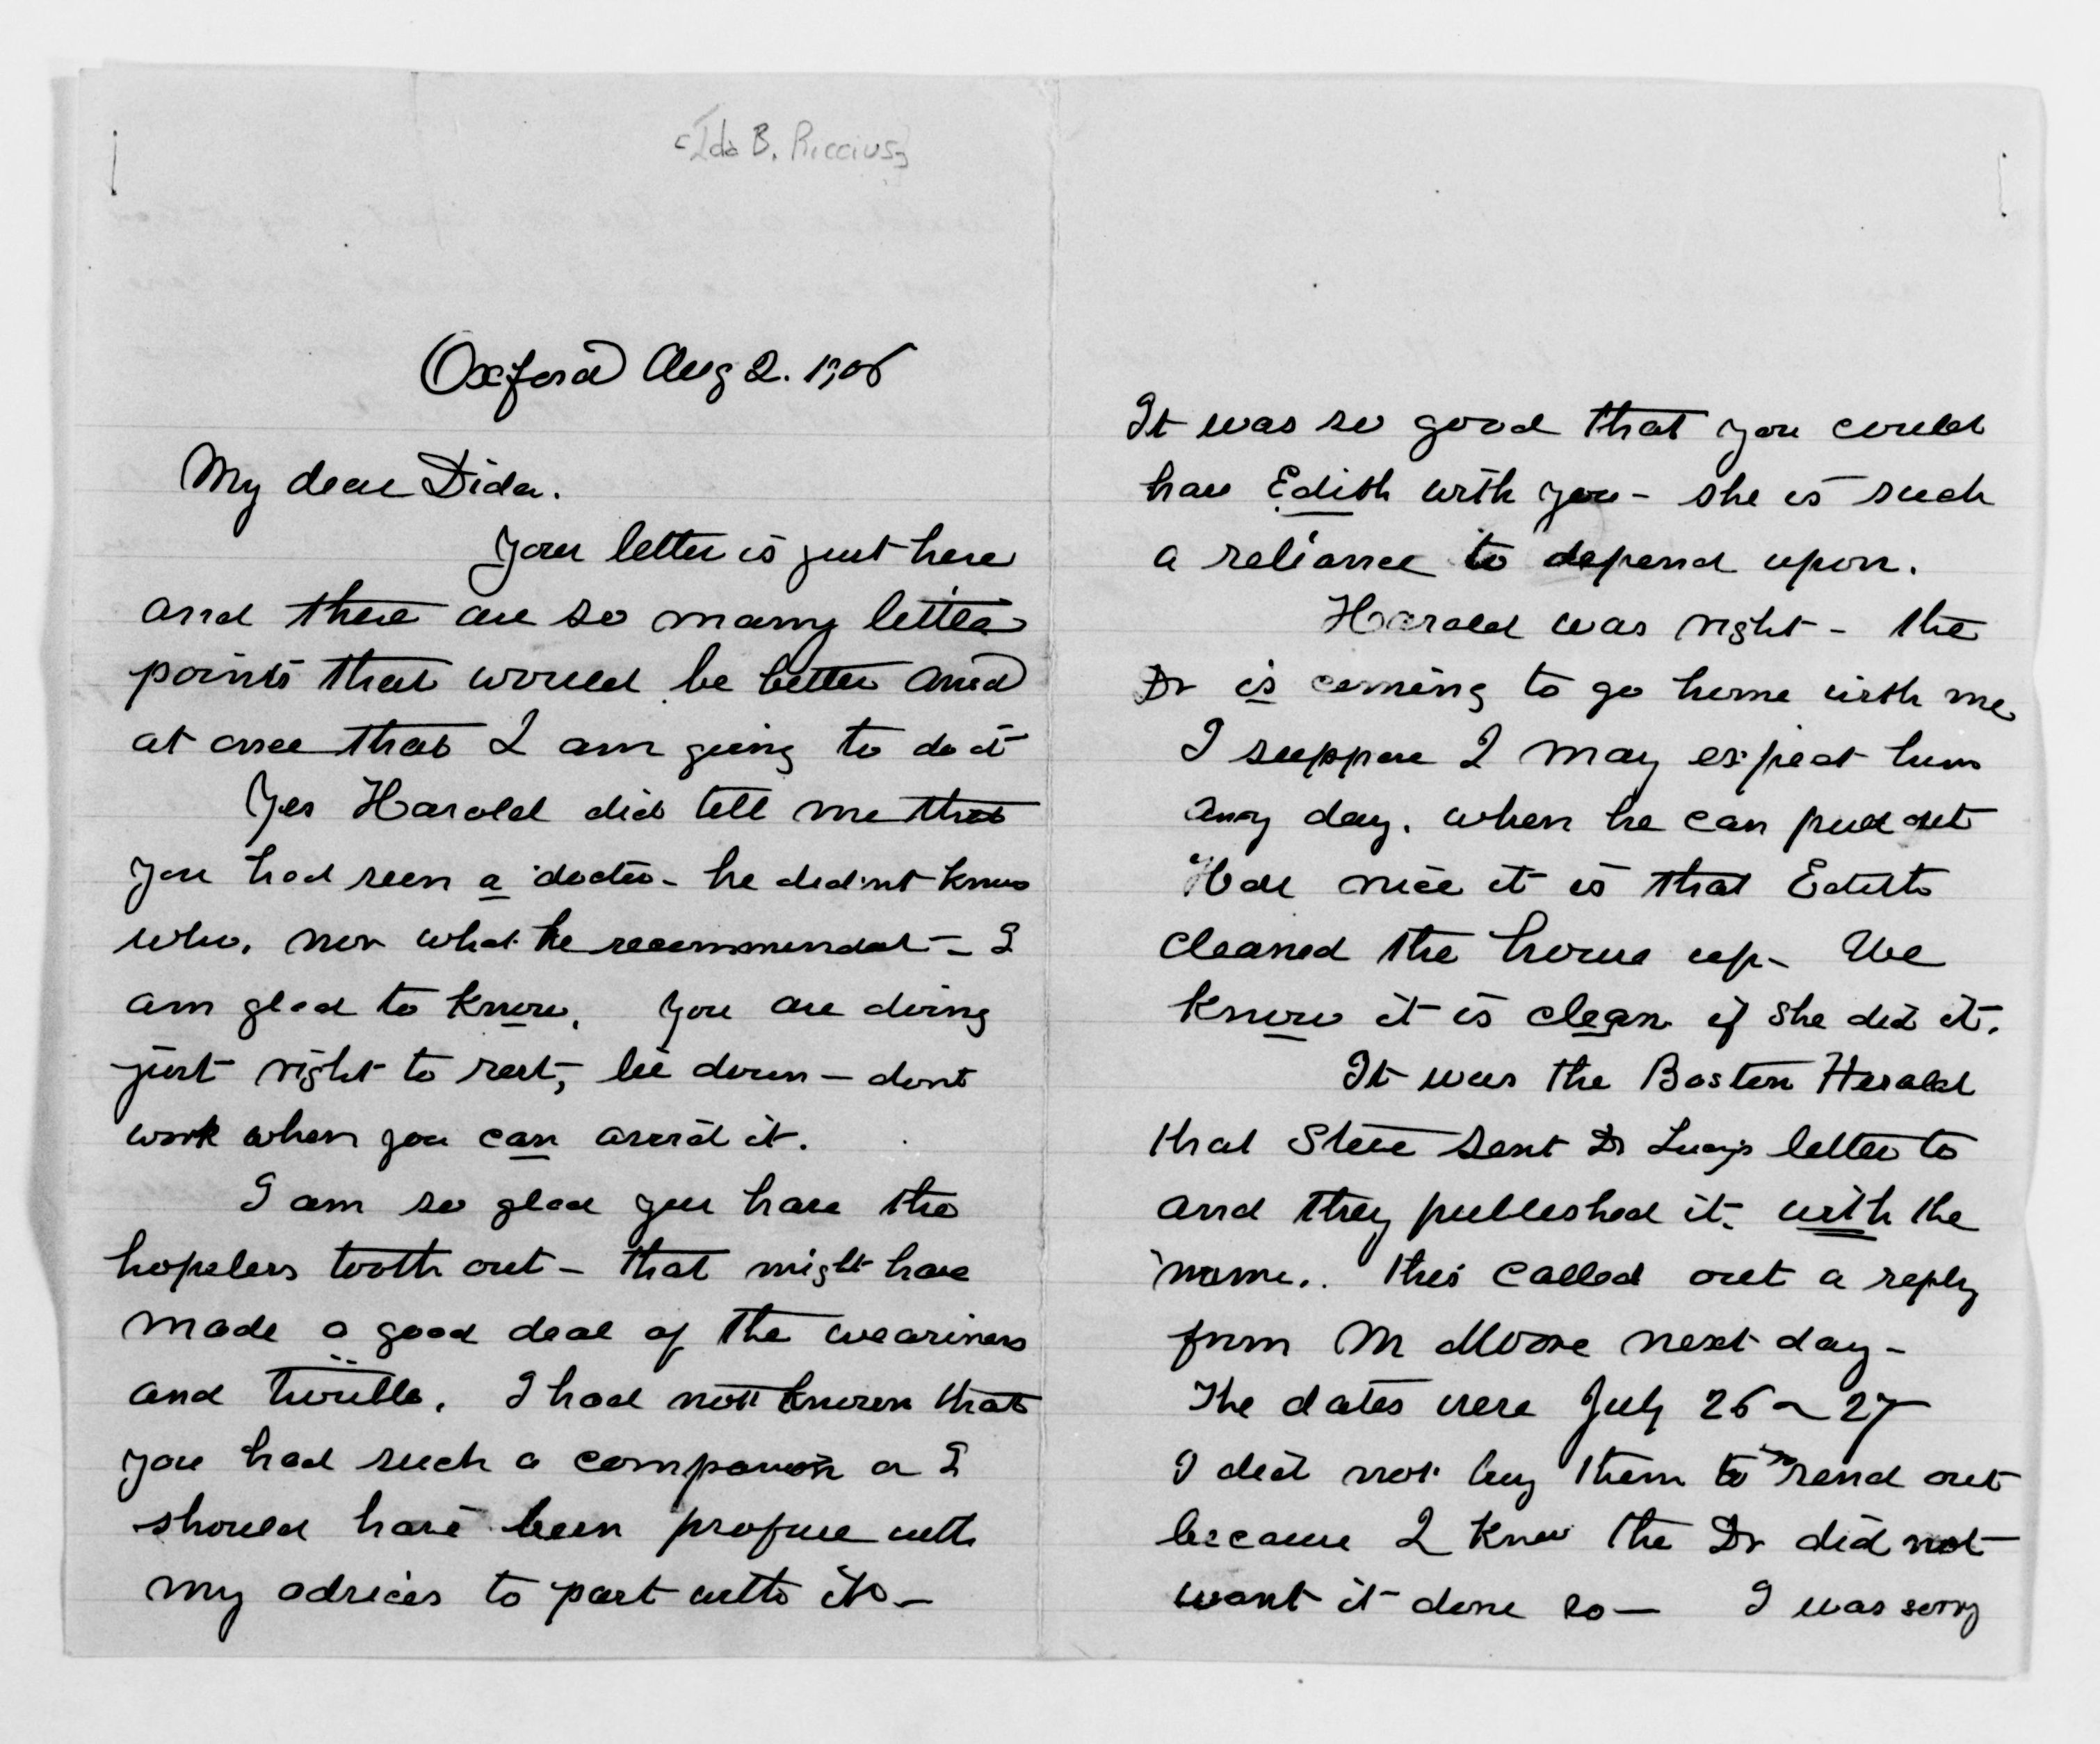 [Ida B. Riccius]
Oxford Aug 2. 1906
My dear Dida.
Your letter is just here
and there are so many little
points that would be better ansd
at once that I am going to do it
Yes Harold did tell me that
you had seen a doctor - he didn't know
who, nor what he recommended - I
am glad to know. You are doing
just right to rest, lie down - dont
work when you can avoid it.
I am so glad you have the
hopeless tooth out - that might have
made a good deal of the weariness
and trouble. I had not known that
you had such a companion or I
should have been profuse with
my advices to part with it -
It was so good that you could
have Edith with you - she is such
a reliance to depend upon.
Harold was right - the
Dr is coming to go home with me
I suppose I may expect him
any day. when he can
How nice it is that Edith
cleaned the house up - We
know it is clean if she did it.
It was the Boston Herald
that Steve sent Dr Lucy's letter to
and they published it. with the
name.. this called out a reply
from M Moore next day -
The dates were July 26 ~ 27
I did not buy them to send out
because I knew the Dr did not
want it done so - I was sorry